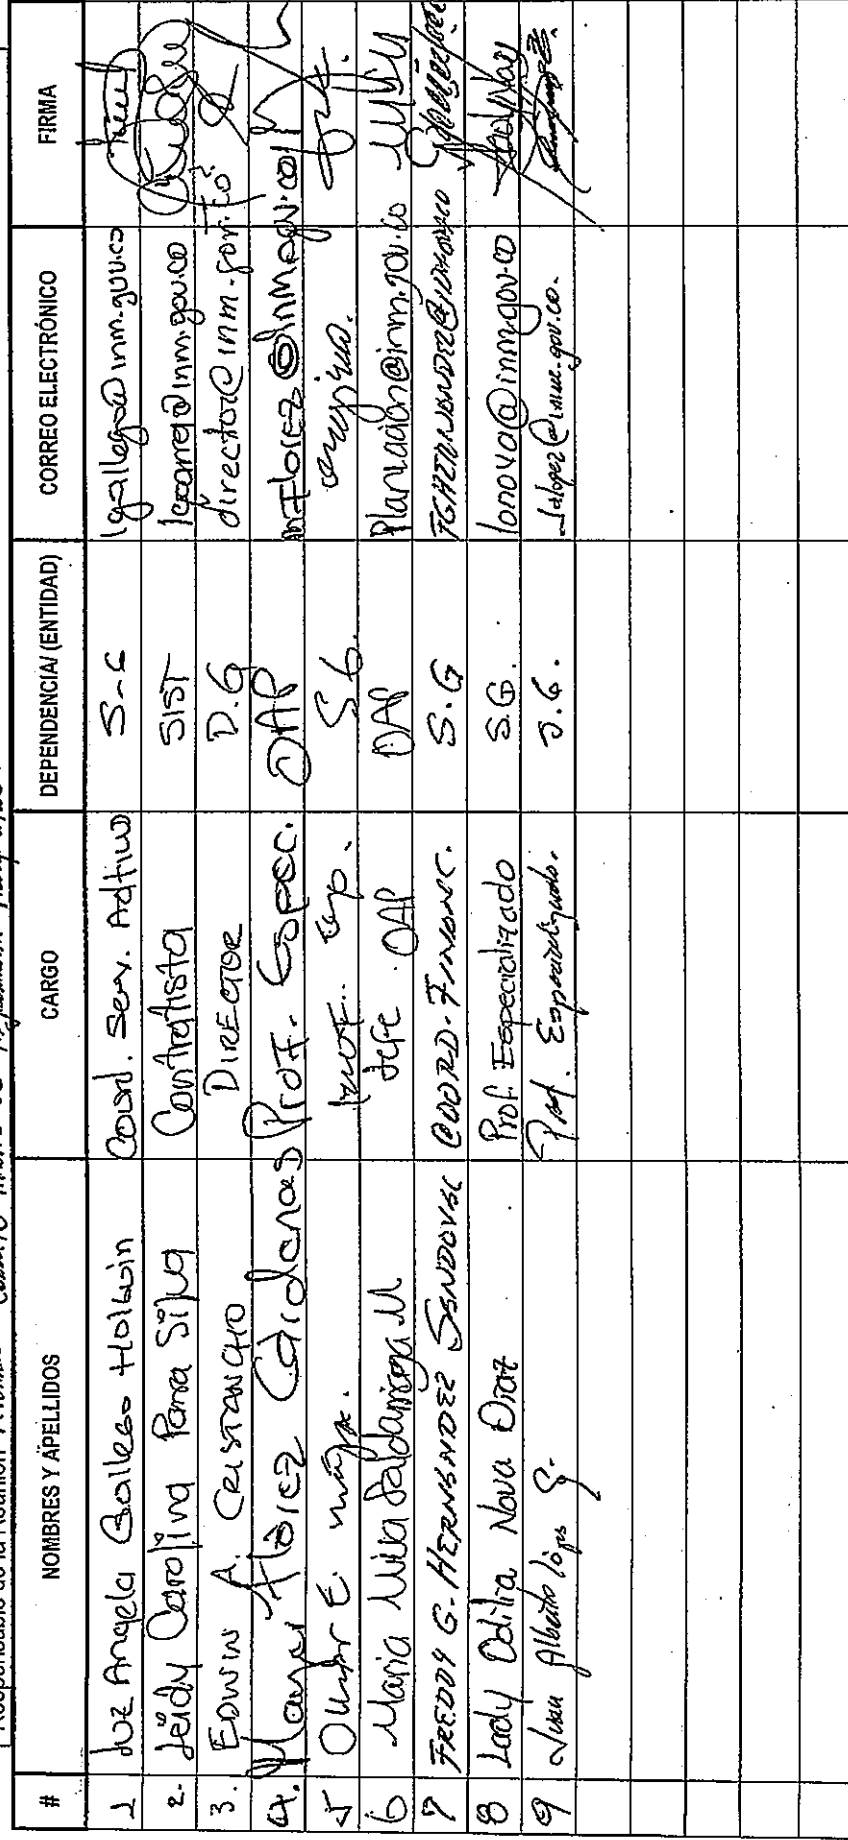 Responsable de la Reunión
# NOMBRES Y APELLIDOS CARGO DEPENDENCIA/ (ENTIDAD) CORREO ELECTRÓNICO FIRMA
1 Luz Angela Gallego Holguin Coord. Serv. Adtivo S-G lgallego@inm.gov.co
2. Leidy Carolina Parra Silva Contratista SIST lcparra@inm.gov.co
3. EDWIN A. CRISTANCHO DIRECTOR D.G director@inm.gov.co
4. Flórez Cárdenas Prof. Espec. OAP mflorez@inm.gov.co
5 Omar E. Prof. Esp. S.G.
6 Maria Saldarriaga M Jefe OAP OAP planeación@inm.gov.co
7 FREDDY G. HERNANDEZ SANDOVAL COORD. FINANC. S.G
8 Lady Odilia Nova Diaz Prof. Especializado S.G. lonova@inm.gov.co
9 Juan Alberto López G. Prof. Especializado. S.G. jalopez@inm.gov.co.